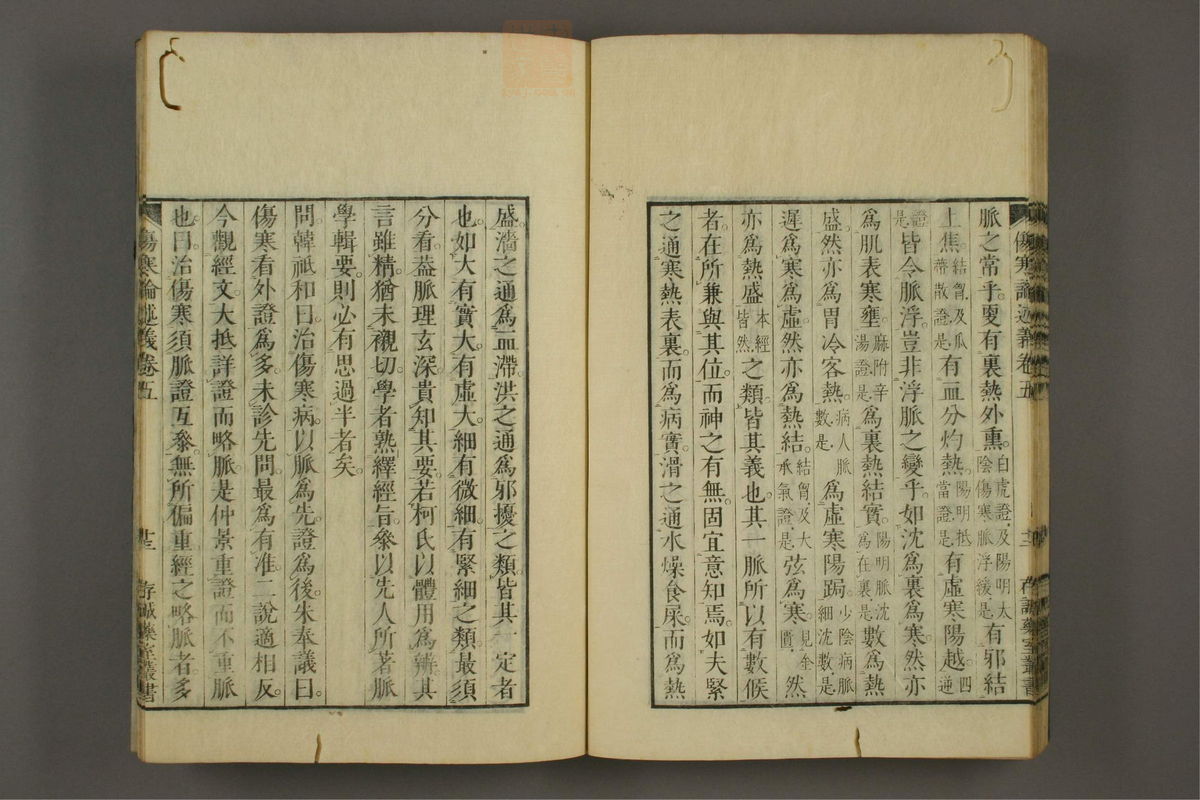 脈之常乎。更有裏熱外熏。白虎證及陽明大陰傷寒脈浮緩是有邪結
上焦結胷及瓜蒂散證是有血分灼熱。陽明抵當證是有虛寒陽越。四通
證是皆令脈浮豈非浮脈之變乎。如沈爲裏爲寒。然亦
爲肌表寒壅。麻附辛湯證是爲裏熱結實。陽明脈沈爲在裏是數爲熱
盛。然亦爲胃冷客熱。病人脈數是爲虛寒陽跼。少陰病脈細沈數是
遲爲寒爲虛。然亦爲熱結。結胷及大承氣證是弦爲寒。見金匱然
亦爲熱盛本經皆然之類。皆其義也。其一脈所以有數候
者。在所兼與其位。而神之有無。固宜意知焉。如夫緊
之通寒熱表裏。而爲病實。滑之通水燥食屎。而爲熱
傷寒論述義卷五 廿二 存誠藥室叢書
盛。濇之通爲血滯。洪之通爲邪擾之類。皆其一定者
也。如大有實大。有虛大。細有微細。有緊細之類。最須
分看。葢脈理玄深。貴知其要。若柯氏以體用爲辨。其
言雖精。猶未襯切。學者熟繹經旨。參以先人所著脈
學輯要。則必有思過半者矣。
問韓祗和曰。治傷寒病。以脈爲先。證爲後。朱奉議曰。
傷寒看外證爲多。未診先問。最爲有準。二說適相反。
今觀經文。大抵詳證而略脈。是仲景重證而不重脈
也。曰。治傷寒須脈證互參。無所偏重。經之略脈者。多
傷寒論述義卷五 廿二 存誠藥室叢書